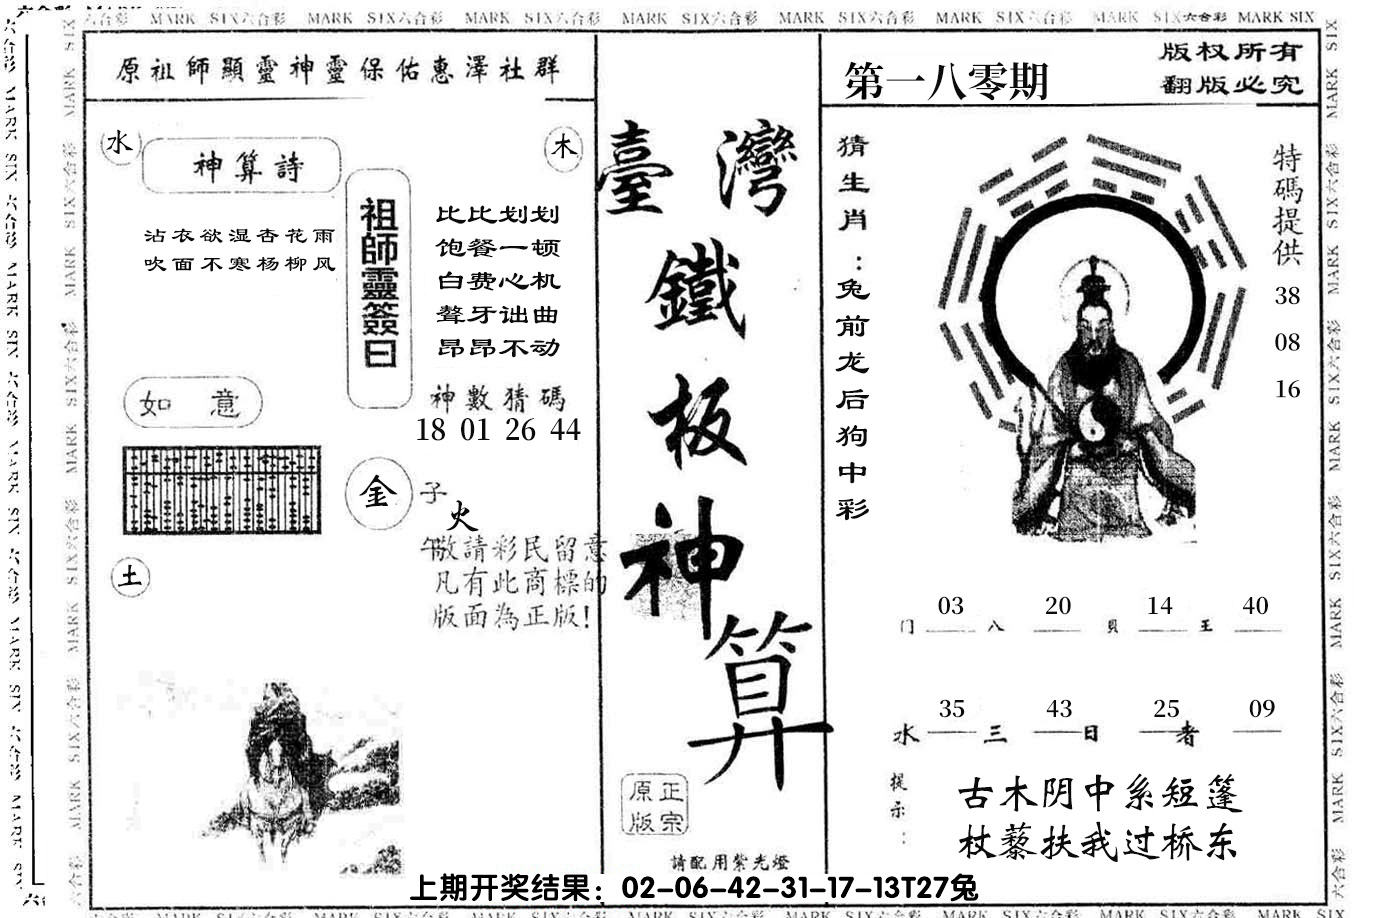 MARK SIX六合彩 MARK SIX六合彩 MARK SIX六合彩 MARK SIX六合彩 MARK SIX六合彩 MARK SIX六合彩 MARK SIX六合彩 MARK SIX
原祖師顯靈神靈保佑惠澤社群
水
神算詩
木
沾衣欲湿杏花雨
吹面不寒杨柳风
祖師靈簽曰
比比划划
饱餐一顿
白费心机
聱牙诎曲
昂昂不动
如意
神數猜碼
18 01 26 44
金
子
火
午
敬請彩民留意
凡有此商標的
版面為正版!
土
臺灣
鐵
板
神
算
正宗
原版
請配用紫光燈
第一八零期
版权所有
翻版必究
猜生肖:兔前龙后狗中彩
特碼提供
38
08
16
03 20 14 40
门 八 貝 王
35 43 25 09
水 三 日 者
提示:
古木阴中系短篷
杖藜扶我过桥东
上期开奖结果：02-06-42-31-17-13T27兔